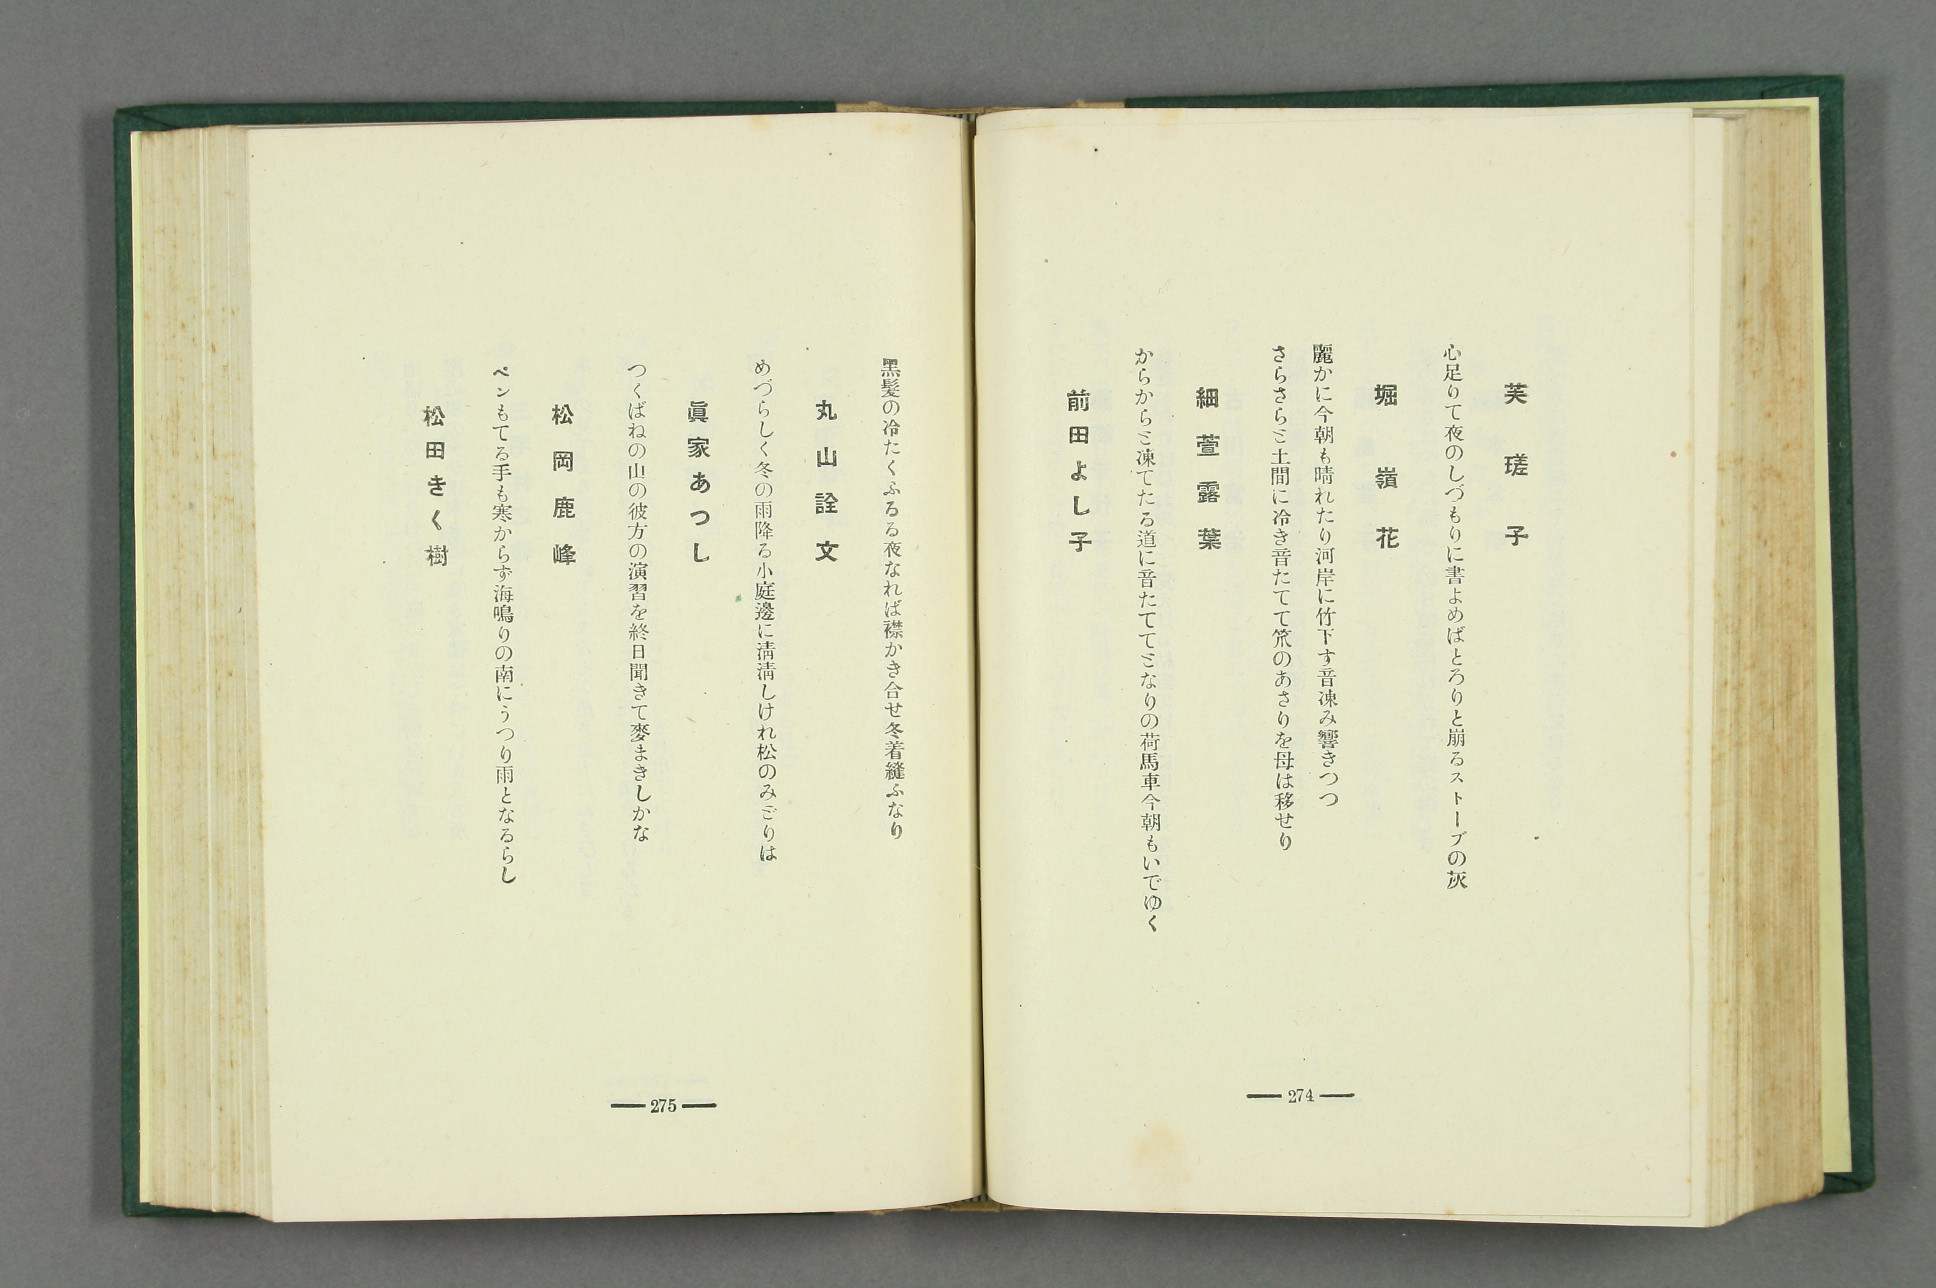 芙瑳子
心足りて夜のしづもりに書よめばとろりと崩るストーブの灰
堀嶺花
麗かに今朝も晴れたり河岸に竹下す音凍み響きつつ
さらさらと土間に冷き音たてて笊のあさりを母は移せり
細萱露葉
からからと凍てたる道に音たててとなりの荷馬車今朝もいでゆく
前田よし子
274
黒髪の冷たくふるる夜なれば襟かき合せ冬着縫ふなり
丸山詮文
めづらしく冬の雨降る小庭邊に淸淸しけれ松のみどりは
眞家あつし
つくばねの山の彼方の演習を終日聞きて麥まきしかな
松岡鹿峰
ペンもてる手も寒からず海鳴りの南にうつり雨となるらし
松田きく樹
275